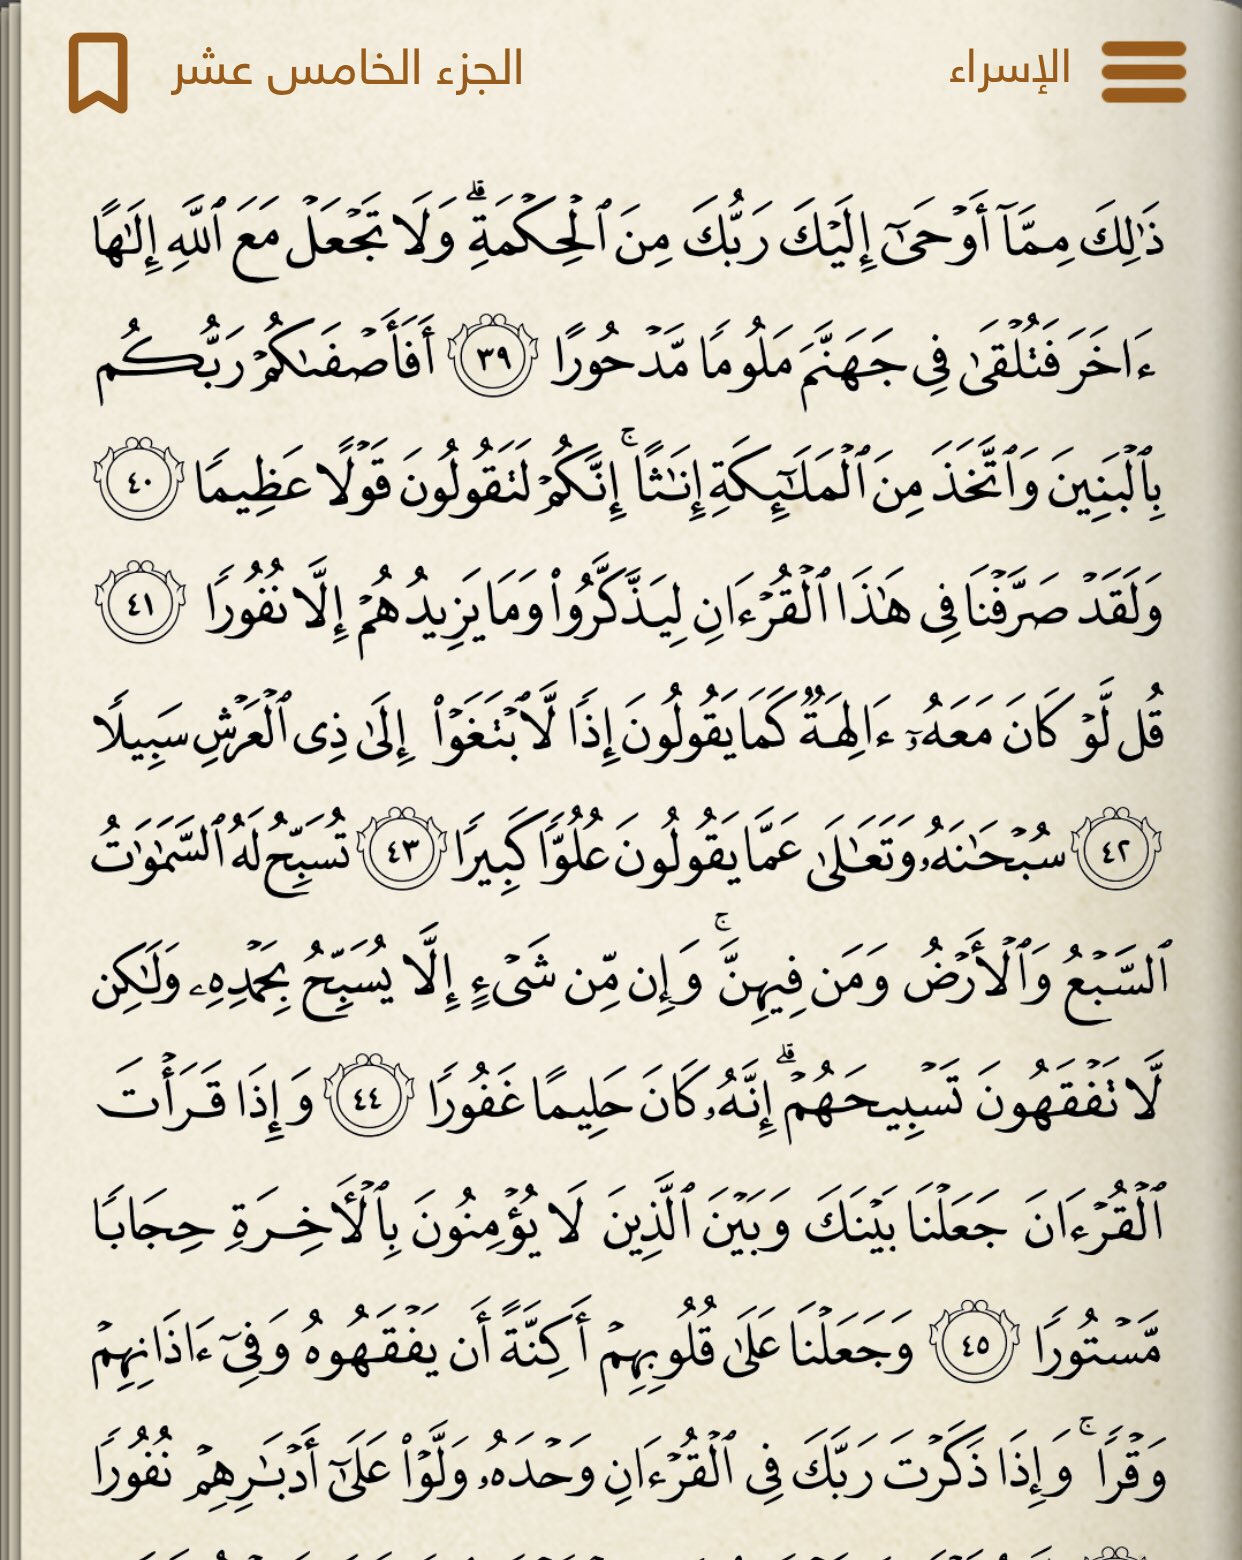 الإسراء
الجزء الخامس عشر
ذَٰلِكَ مِمَّآ أَوۡحَىٰٓ إِلَيۡكَ رَبُّكَ مِنَ ٱلۡحِكۡمَةِۗ وَلَا تَجۡعَلۡ مَعَ ٱللَّهِ إِلَٰهًا
ءَاخَرَ فَتُلۡقَىٰ فِي جَهَنَّمَ مَلُومٗا مَّدۡحُورًا ٣٩ أَفَأَصۡفَىٰكُمۡ رَبُّكُم
بِٱلۡبَنِينَ وَٱتَّخَذَ مِنَ ٱلۡمَلَٰٓئِكَةِ إِنَٰثًاۚ إِنَّكُمۡ لَتَقُولُونَ قَوۡلًا عَظِيمٗا ٤٠
وَلَقَدۡ صَرَّفۡنَا فِي هَٰذَا ٱلۡقُرۡءَانِ لِيَذَّكَّرُواْ وَمَا يَزِيدُهُمۡ إِلَّا نُفُورٗا ٤١
قُل لَّوۡ كَانَ مَعَهُۥٓ ءَالِهَةٞ كَمَا يَقُولُونَ إِذٗا لَّٱبۡتَغَوۡاْ إِلَىٰ ذِي ٱلۡعَرۡشِ سَبِيلٗا
٤٢ سُبۡحَٰنَهُۥ وَتَعَٰلَىٰ عَمَّا يَقُولُونَ عُلُوّٗا كَبِيرٗا ٤٣ تُسَبِّحُ لَهُ ٱلسَّمَٰوَٰتُ
ٱلسَّبۡعُ وَٱلۡأَرۡضُ وَمَن فِيهِنَّۚ وَإِن مِّن شَيۡءٍ إِلَّا يُسَبِّحُ بِحَمۡدِهِۦ وَلَٰكِن
لَّا تَفۡقَهُونَ تَسۡبِيحَهُمۡۗ إِنَّهُۥ كَانَ حَلِيمًا غَفُورٗا ٤٤ وَإِذَا قَرَأۡتَ
ٱلۡقُرۡءَانَ جَعَلۡنَا بَيۡنَكَ وَبَيۡنَ ٱلَّذِينَ لَا يُؤۡمِنُونَ بِٱلۡأٓخِرَةِ حِجَابٗا
مَّسۡتُورٗا ٤٥ وَجَعَلۡنَا عَلَىٰ قُلُوبِهِمۡ أَكِنَّةً أَن يَفۡقَهُوهُ وَفِيٓ ءَاذَانِهِمۡ
وَقۡرٗاۚ وَإِذَا ذَكَرۡتَ رَبَّكَ فِي ٱلۡقُرۡءَانِ وَحۡدَهُۥ وَلَّوۡاْ عَلَىٰٓ أَدۡبَٰرِهِمۡ نُفُورٗا